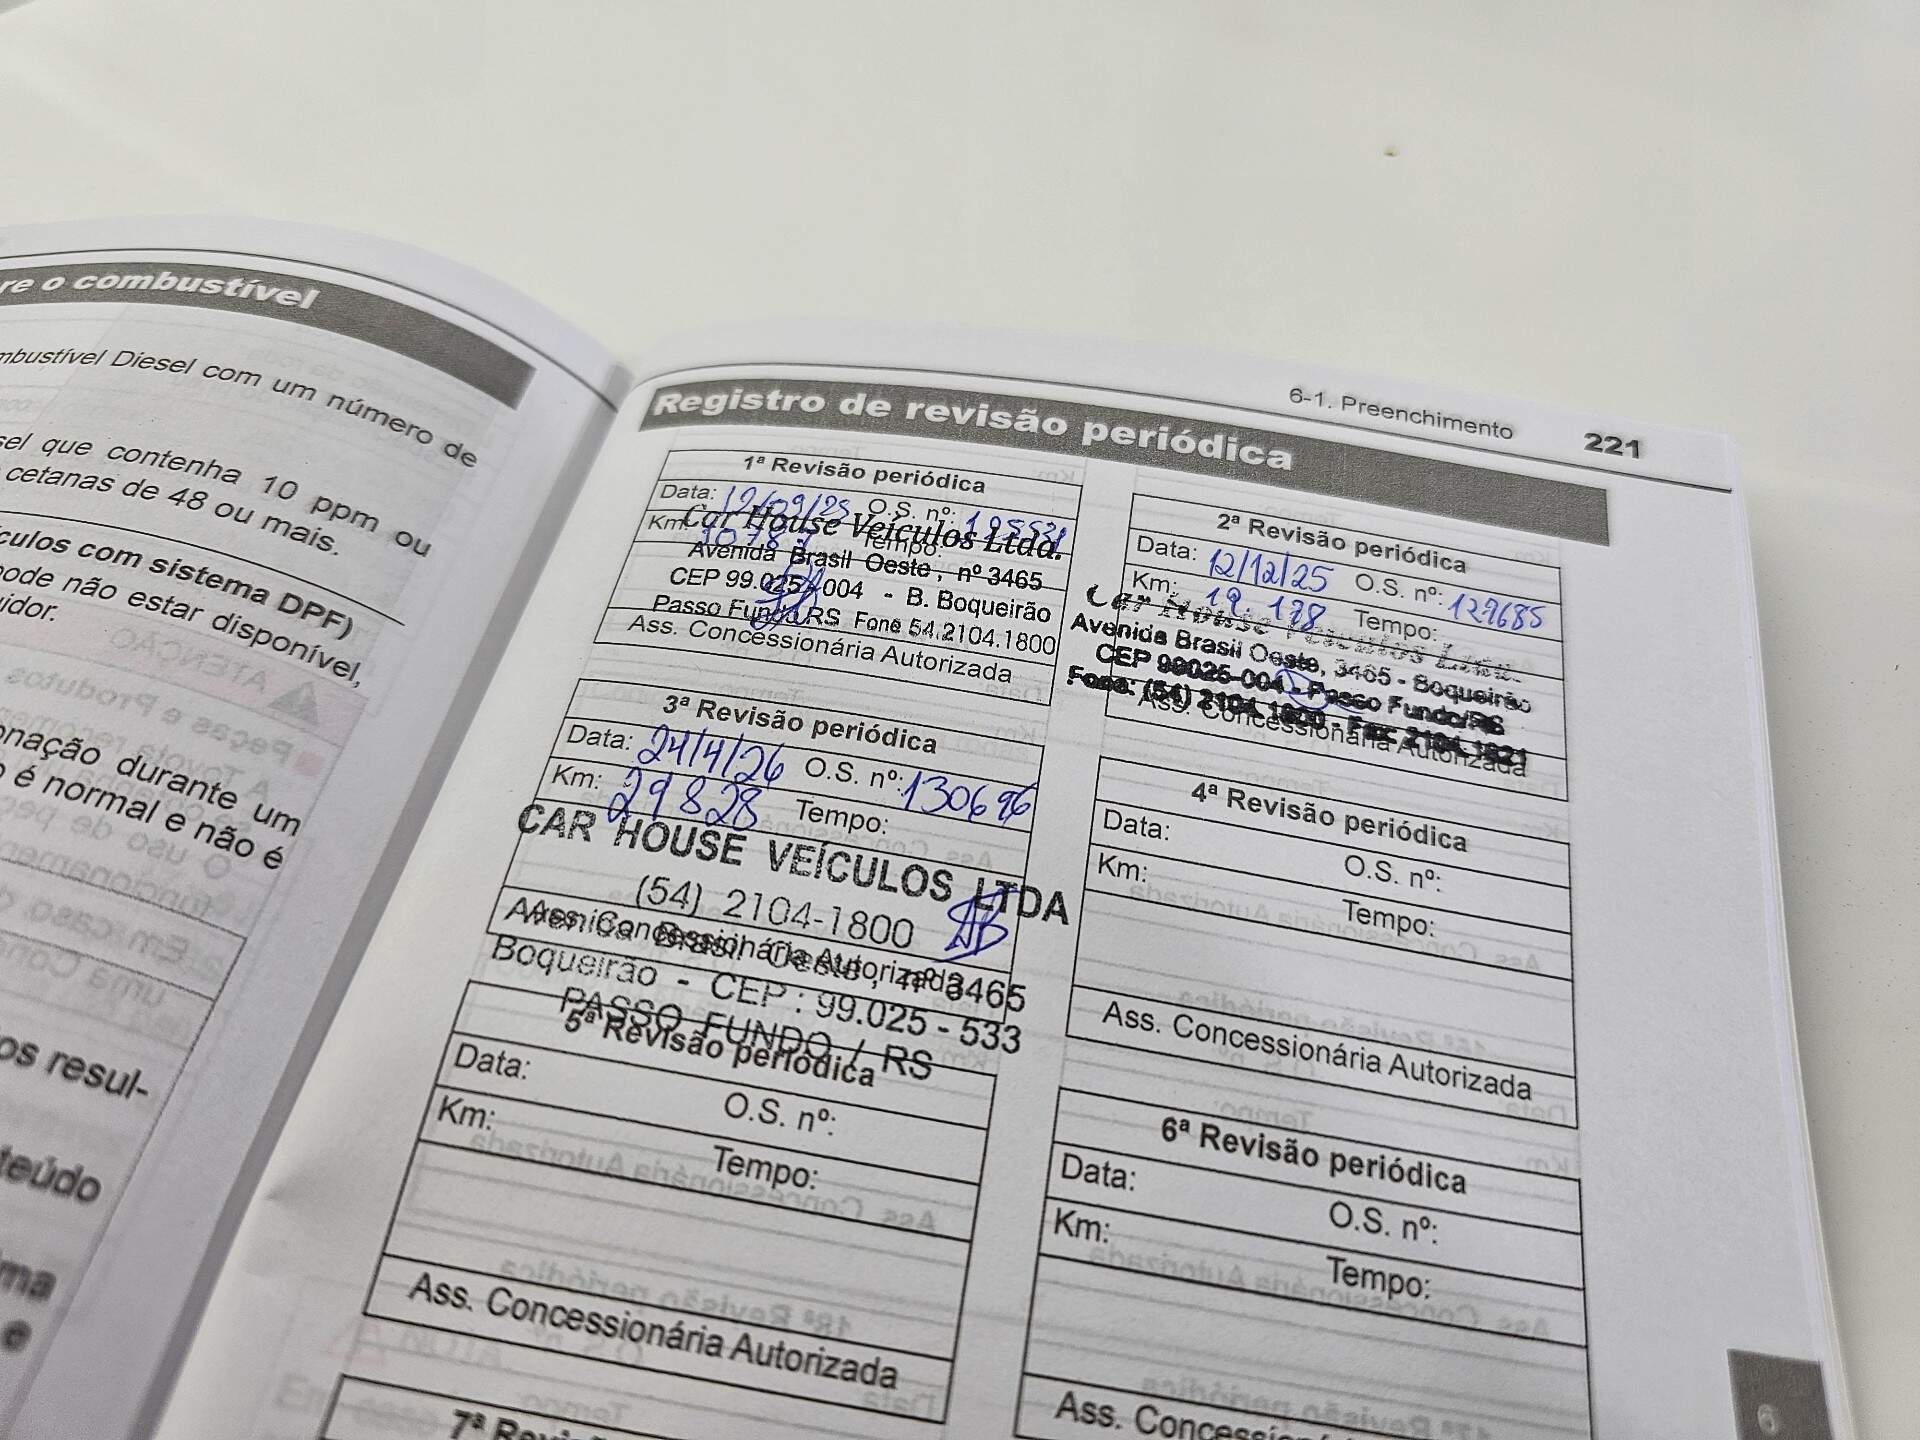 re o combustível
mbustível Diesel com um número de
sel que contenha 10 ppm ou
cetanas de 48 ou mais.
culos com sistema DPF)
pode não estar disponível,
uidor.
ATENÇÃO
Peças e Produtos
A Toyota
O uso de
Em caso
uma
onação durante um
o é normal e não é
os resul-
teúdo
ma
e
6-1. Preenchimento 221
Registro de revisão periódica
1ª Revisão periódica
Data: 12/09/25 O.S. nº:
Km: Tempo:
Car House Veículos Ltda.
Avenida Brasil Oeste, nº 3465
CEP 99.025-004 - B. Boqueirão
Passo Fundo RS Fone 54.2104.1800
Ass. Concessionária Autorizada
2ª Revisão periódica
Data: 12/12/25 O.S. nº: 127685
Km: 19.178 Tempo:
Car House Veículos Ltda.
Avenida Brasil Oeste, 3465 - Boqueirão
CEP 99025-004 - Passo Fundo/RS
Fone: (54) 2104.1800 - Fax: 2104.1821
Ass. Concessionária Autorizada
3ª Revisão periódica
Data: 24/4/26 O.S. nº: 130696
Km: 29828 Tempo:
CAR HOUSE VEÍCULOS LTDA
(54) 2104-1800
Ass. Concessionária Autorizada
Avenida Brasil Oeste, nº 3465
Boqueirão - CEP: 99.025-533
PASSO FUNDO / RS
4ª Revisão periódica
Data: O.S. nº:
Km: Tempo:
Ass. Concessionária Autorizada
5ª Revisão periódica
Data: O.S. nº:
Km: Tempo:
Ass. Concessionária Autorizada
6ª Revisão periódica
Data: O.S. nº:
Km: Tempo:
Ass.
7ª
6